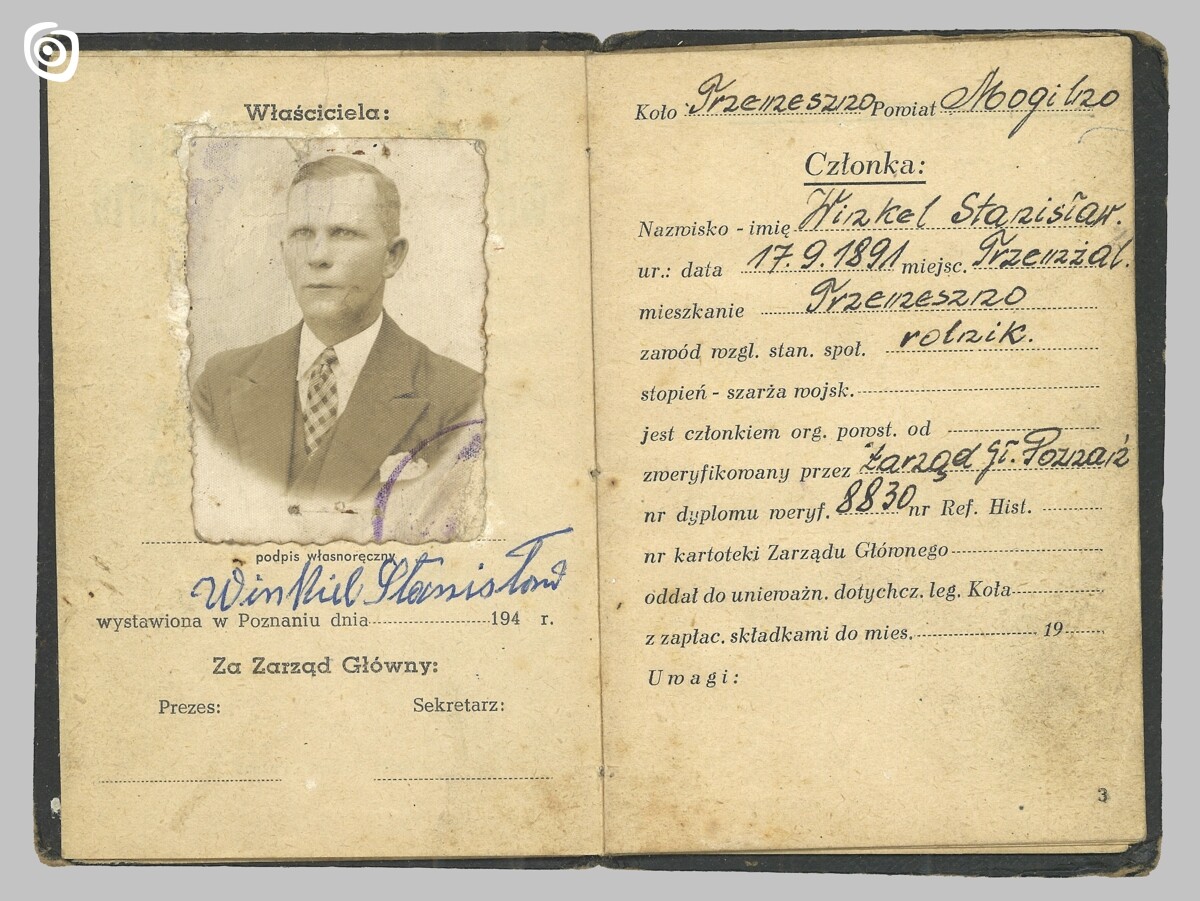 Właściciela:
podpis własnoręczny
Winkiel Stanisław
wystawiona w Poznaniu dnia 194 r.
Za Zarząd Główny:
Prezes: Sekretarz:
Koło Trzemeszno Powiat Mogilno
Członka:
Nazwisko - imię Winkel Stanisław.
ur.: data 17.9.1891 miejsc. Trzemżal.
mieszkanie Trzemeszno
zawód wzgl. stan. społ. rolnik.
stopień - szarża wojsk.
jest członkiem org. powst. od
zweryfikowany przez Zarząd Gł. Poznań
nr dyplomu weryf. 8830 nr Ref. Hist.
nr kartoteki Zarządu Głównego
oddał do unieważn. dotychcz. leg. Koła
z zapłac. składkami do mies. 19
Uwagi:
3